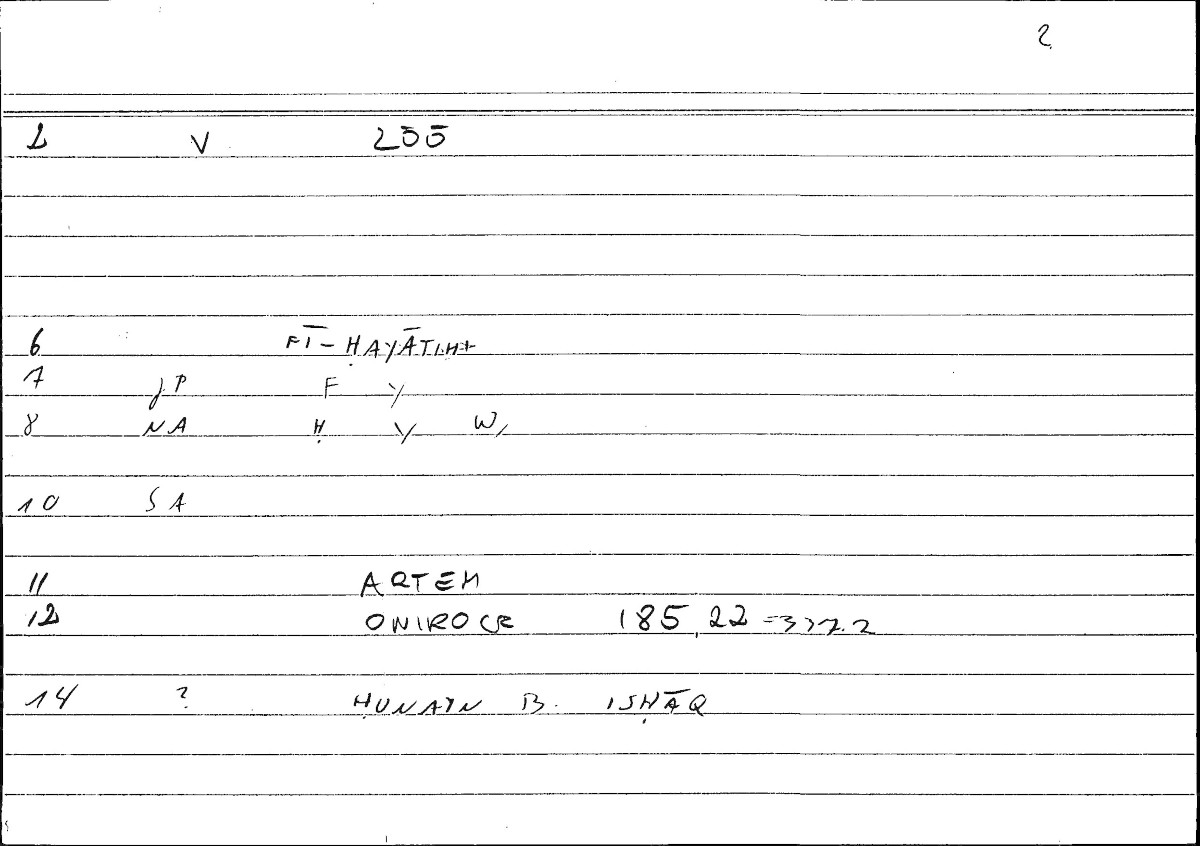 2
2 V 2ōō
6 FĪ-ḤAYĀTIHI
7 JP F Y
8 NA Ḥ Y W,
10 SA
11 ARTEM
12 ONIROCR 185,22 =337.2
14 ? ḤUNAYN B. ISḤĀQ